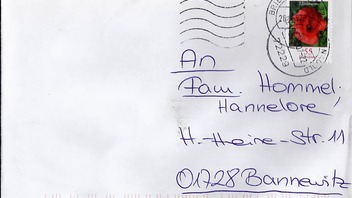 An
Fam. Hommel
Hannelore,
H.-Heine-Str. 11
01728 Bannewitz